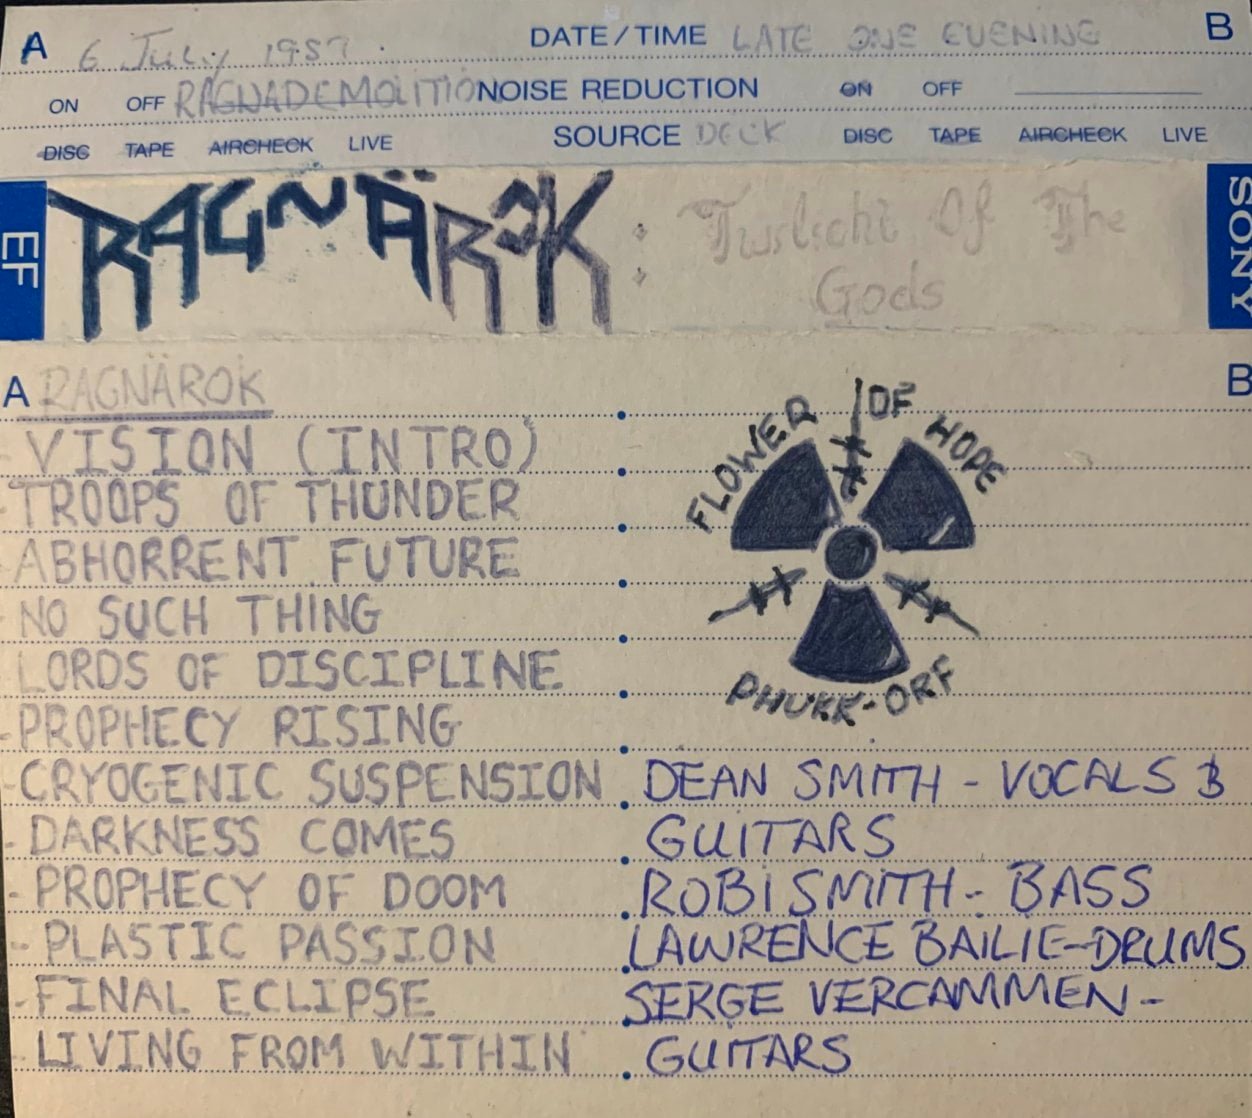 A 6 July 1987. DATE/TIME LATE ONE EVENING B
ON OFF RAGNADEMOLITION NOISE REDUCTION ON OFF
DISC TAPE AIRCHECK LIVE SOURCE DECK DISC TAPE AIRCHECK LIVE
EF RAGNÄROK : Twilight Of The SONY
Gods
A RAGNÄROK B
FLOWER OF HOPE
- VISION (INTRO)
- TROOPS OF THUNDER
- ABHORRENT FUTURE
- NO SUCH THING
- LORDS OF DISCIPLINE
PHUKK-ORF
- PROPHECY RISING
- CRYOGENIC SUSPENSION DEAN SMITH - VOCALS &
- DARKNESS COMES GUITARS
- PROPHECY OF DOOM ROBI SMITH - BASS
- PLASTIC PASSION LAWRENCE BAILIE-DRUMS
- FINAL ECLIPSE SERGE VERCAMMEN -
- LIVING FROM WITHIN GUITARS